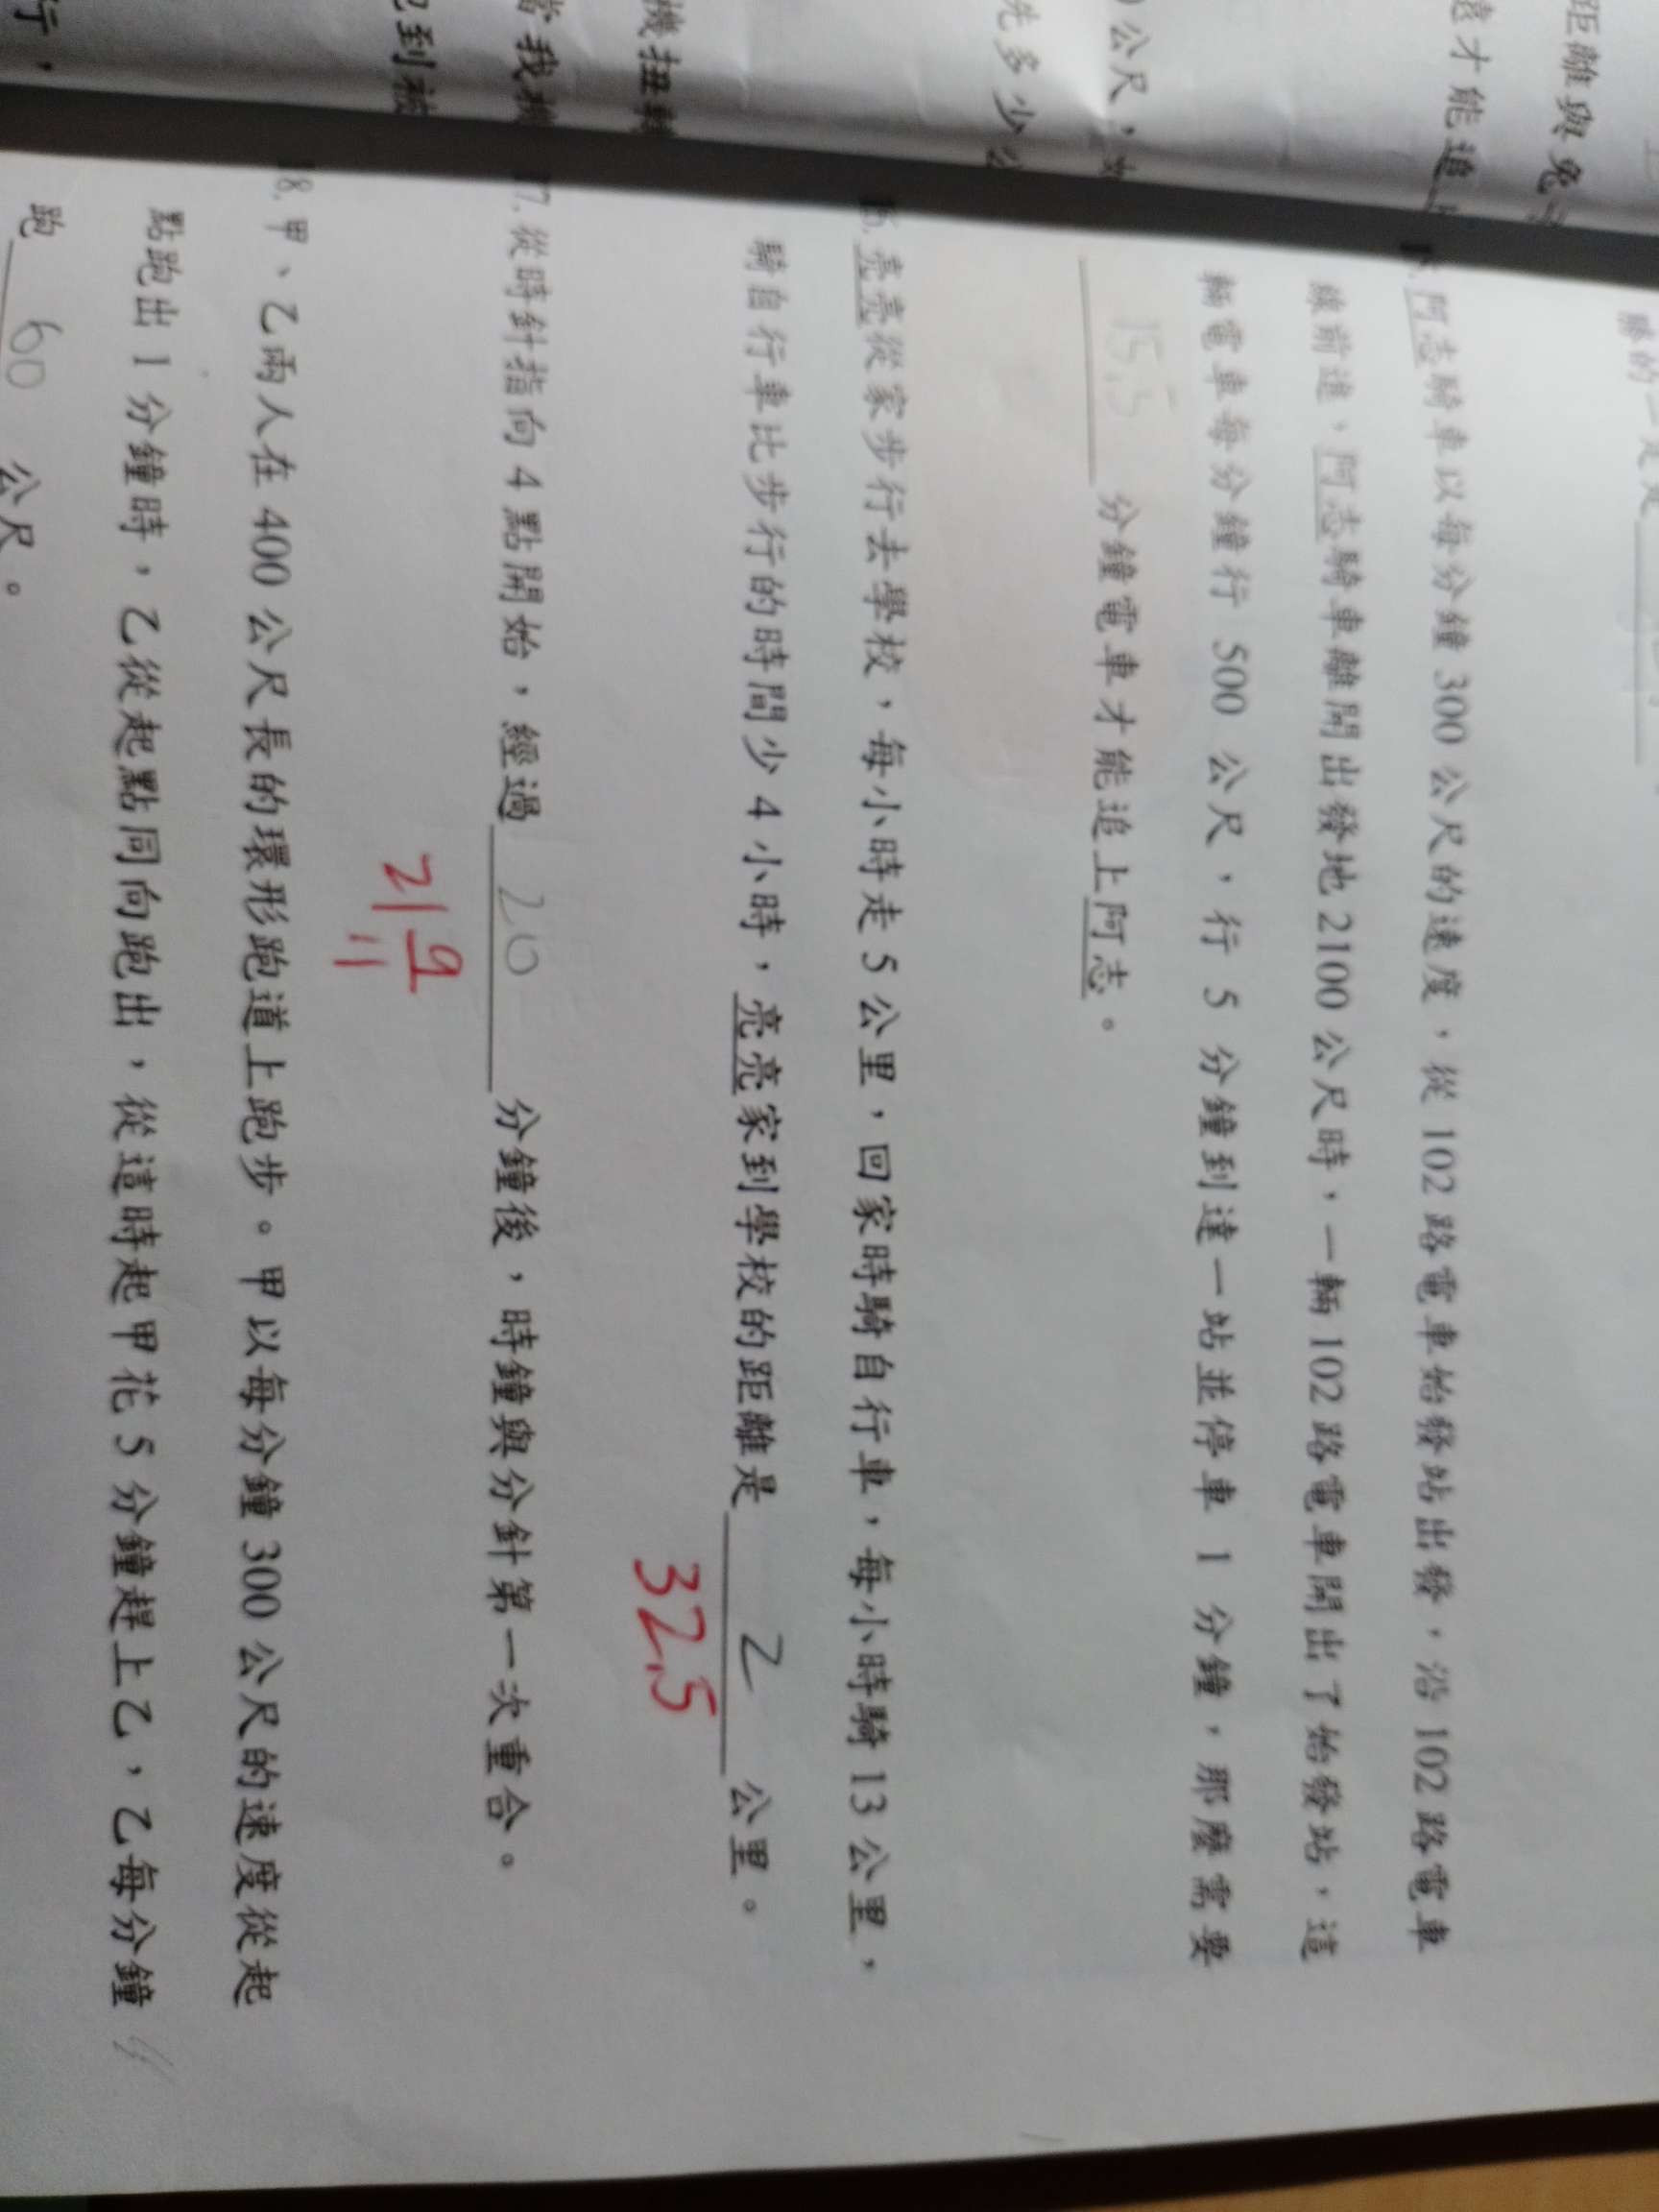 距離與兔
遠才能追
公尺,
先多少公
機扭轉
當我
到被
行,
勝的一定是
阿志騎車以每分鐘300公尺的速度,從102路電車始發站出發,沿102路電車
線前進、阿志騎車離開出發地2100公尺時,一輛102路電車開出了始發站,這
輛電車每分鐘行500公尺,行5分鐘到達一站並停車1分鐘,那麼需要
15.5分鐘電車才能追上阿志。
亮亮從家步行去學校,每小時走5公里,回家時騎自行車,每小時騎13公里,
騎自行車比步行的時間少4小時,亮亮家到學校的距離是2公里。
32.5
7.從時針指向4點開始,經過20分鐘後,時鐘與分針第一次重合。
21 9/11
8.甲、乙兩人在400公尺長的環形跑道上跑步。甲以每分鐘300公尺的速度從起
點跑出1分鐘時,乙從起點同向跑出,從這時起甲花5分鐘趕上乙,乙每分鐘
跑60公尺。